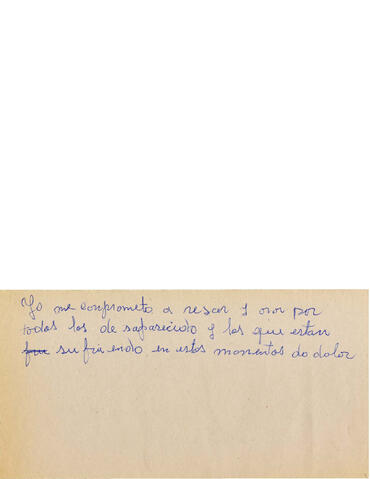 Yo me comprometo a resar y orar por
todos los de saparecido y los que estan
fue su fri endo en estos momentos do dolor